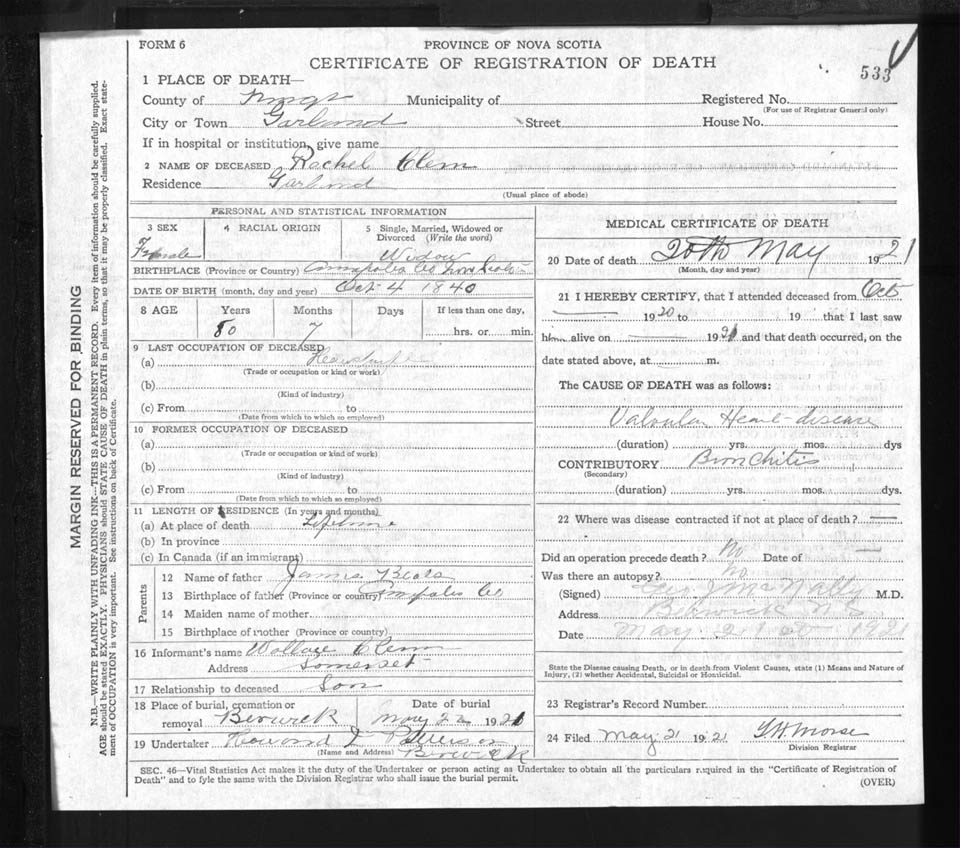 FORM 6
PROVINCE OF NOVA SCOTIA
CERTIFICATE OF REGISTRATION OF DEATH
533
1 PLACE OF DEATH—
County of Kings Municipality of Registered No.
(For use of Registrar General only)
City or Town Garland Street House No.
If in hospital or institution, give name
2 NAME OF DECEASED Rachel Clem
Residence Garland
(Usual place of abode)
PERSONAL AND STATISTICAL INFORMATION
3 SEX 4 RACIAL ORIGIN 5 Single, Married, Widowed or Divorced (Write the word)
Female Widow
BIRTHPLACE (Province or Country) Annapolis Co Nova Scotia
DATE OF BIRTH (month, day and year) Oct 4 1840
8 AGE Years Months Days If less than one day,
80 7 hrs. or min.
9 LAST OCCUPATION OF DECEASED
(a)
(Trade or occupation or kind or work)
(b)
(Kind of industry)
(c) From to
(Date from which to which so employed)
10 FORMER OCCUPATION OF DECEASED
(a)
(Trade or occupation or kind of work)
(b)
(Kind of industry)
(c) From to
(Date from which to which so employed)
11 LENGTH OF RESIDENCE (In years and months)
(a) At place of death Lifetime
(b) In province
(c) In Canada (if an immigrant)
Parents
12 Name of father James Beals
13 Birthplace of father (Province or country) Annapolis Co
14 Maiden name of mother
15 Birthplace of mother (Province or country)
16 Informant's name Wallace Clem
Address Somerset
17 Relationship to deceased Son
18 Place of burial, cremation or removal Berwick
Date of burial
May 22 1921
19 Undertaker Howard Peterson
(Name and Address) Berwick
MEDICAL CERTIFICATE OF DEATH
20 Date of death 20th May 1921
(Month, day and year)
21 I HEREBY CERTIFY, that I attended deceased from Oct
1920 to 19 that I last saw
h alive on 1921 and that death occurred, on the
date stated above, at m.
The CAUSE OF DEATH was as follows:
Valvular Heart-disease
(duration) yrs. mos. dys
CONTRIBUTORY Bronchitis
(Secondary)
(duration) yrs. mos. dys.
22 Where was disease contracted if not at place of death? —
Did an operation precede death? No Date of —
Was there an autopsy? No
(Signed) J McNally M.D.
Address Berwick N S
Date May 21st 1921
State the Disease causing Death, or in death from Violent Causes, state (1) Means and Nature of
Injury, (2) whether Accidental, Suicidal or Homicidal.
23 Registrar's Record Number
24 Filed May 21 1921 Morse
Division Registrar
SEC. 46—Vital Statistics Act makes it the duty of the Undertaker or person acting as Undertaker to obtain all the particulars required in the "Certificate of Registration of
Death" and to fyle the same with the Division Registrar who shall issue the burial permit.
(OVER)
MARGIN RESERVED FOR BINDING
N.B.—WRITE PLAINLY WITH UNFADING INK—THIS IS A PERMANENT RECORD. Every item of information should be carefully supplied.
AGE should be stated EXACTLY. PHYSICIANS should STATE CAUSE OF DEATH in plain terms, so that it may be properly classified. Exact state-
ment of OCCUPATION is very important. See instructions on back of Certificate.